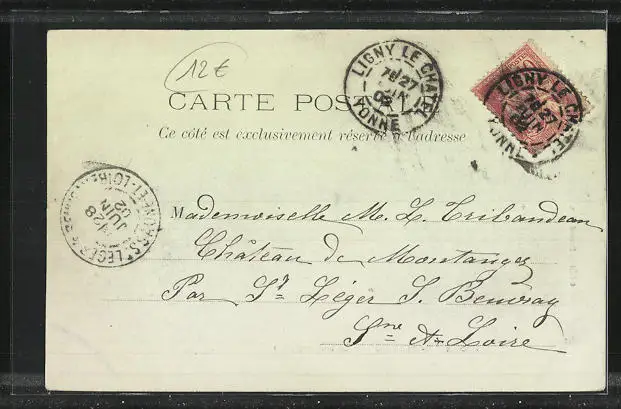 12€
CARTE POSTALE
Ce côté est exclusivement réservé à l'adresse
LIGNY LE CHATEL
7E 27
JUIN
02
YONNE
LIGNY LE CHATEL
7E 27
YONNE
ST LEGER
28
JUIN
02
ET-LOIRE
Mademoiselle M. L. Tribandeau
Château de Montanges
Par St Léger S. Beuvray
Sne & Loire